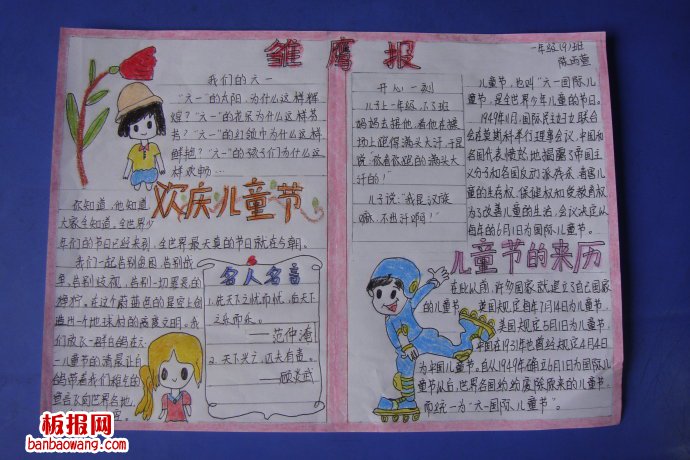 雏鹰报
一年级(9)班
陈雨萱
我们的六一
"六一"的太阳,为什么这样辉
煌?"六一"的花朵为什么这样芬
芳?"六一"的红领巾为什么这样
鲜艳?"六一"的孩子们为什么这
样欢畅……
欢庆儿童节
你知道,他知道
大家全知道。全世界少
年们的节日已经来到,全世界最天真的节日就在今朝。
我们一起告别贫困 告别战
争,告别歧视,告别一切罪恶的
在这个蔚蓝色的星空上创
造出一个地球村的高度文明。我
们放飞一群白鸽在六
一儿童节的清晨让白
鸽带着我们相约的
飞向世界各地
名人名言
1.先天下之忧而忧,后天下
之乐而乐。
——范仲淹
2.天下兴亡,匹夫有责。
——顾炎武
开心一刻
儿子上一年级,下了班
妈妈去接他,看他在操
场上跑得满头大汗,于是
说:"你看你跑的满头大
汗的!"
儿子说:"我是汉族
嘛,不出汗咧!"
儿童节,也叫"六一国际儿
童节,是全世界少年儿童的节日。
1949年11月,国际民主妇女联合
会在莫斯科举行理事会议,中国和
各国代表愤怒地揭露了帝国主
义分子和各国反动派残杀、毒害儿
童的生存权、保健权和受教育权,
为了改善儿童的生活,会议决定以
每年的6月1日为国际儿童节。
儿童节的来历
在此以前,许多国家就建立自己国家
的儿童节,英国规定每年7月14日为儿童节,
美国规定5月1日为儿童节,
中国在1931年也曾经规定4月4日
为中国儿童节。自从1949年确立6月1日为国际儿
童节以后,世界各国纷纷废除原来的儿童节,
而统一为"六一国际儿童节"。
板报网
banbaowang.com